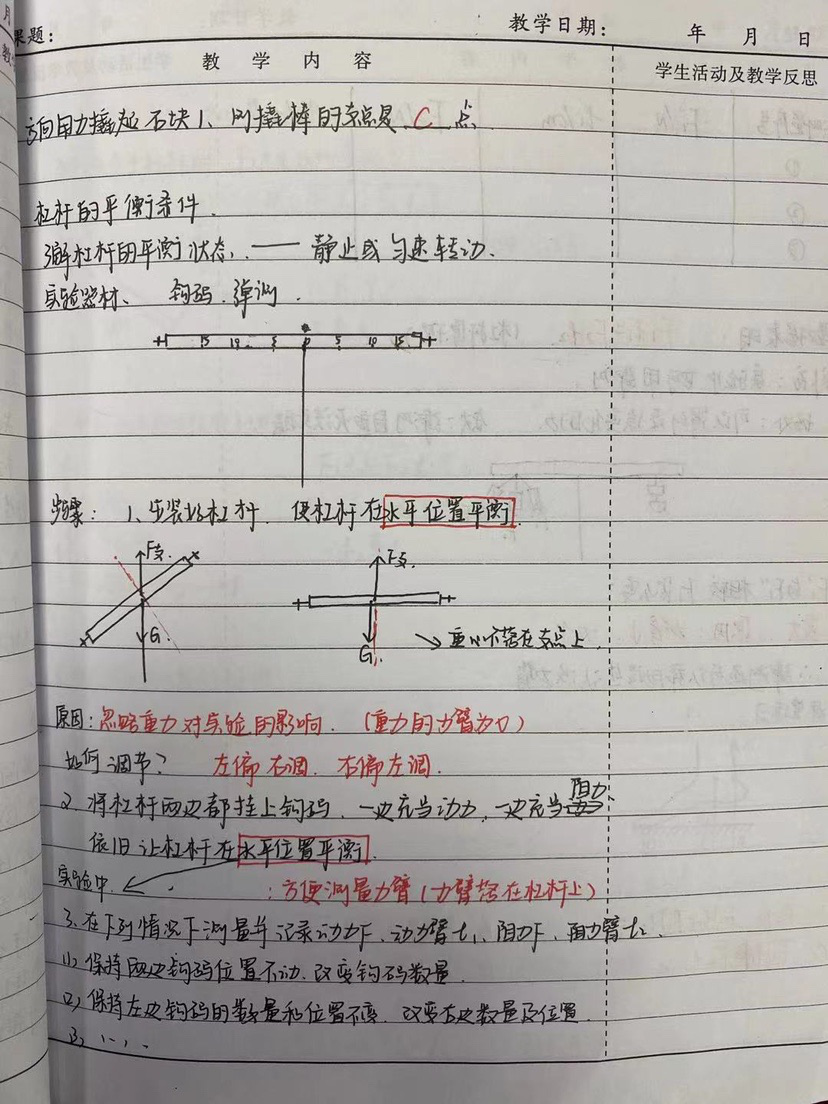 课题：
教学日期： 年 月 日
教 学 内 容
学生活动及教学反思
方向用力撬起石块1、则撬棒的支点是 C 点
杠杆的平衡条件.
杠杆的平衡状态. —— 静止或匀速转动.
实验器材、 钩码. 弹测.
15 10 5 0 5 10 15
步骤: 1、安装好杠杆. 使杠杆在水平位置平衡
F支. F支.
G. G.
→ 重心落在支点上.
原因: 忽略重力对实验的影响. (重力的力臂为0)
如何调节? 左偏右调. 右偏左调.
阻力.
2. 将杠杆两边都挂上钩码. 一边充当动力, 一边充当
依旧让杠杆在水平位置平衡.
实验中. : 方便测量力臂(力臂落在杠杆上)
3. 在下列情况下测量并记录动力F、动力臂L1、阻力F、阻力臂L2.
(1)、保持两边钩码位置不动. 改变钩码数量.
(2)、保持左边钩码的数量和位置不变. 改变右边数量及位置.